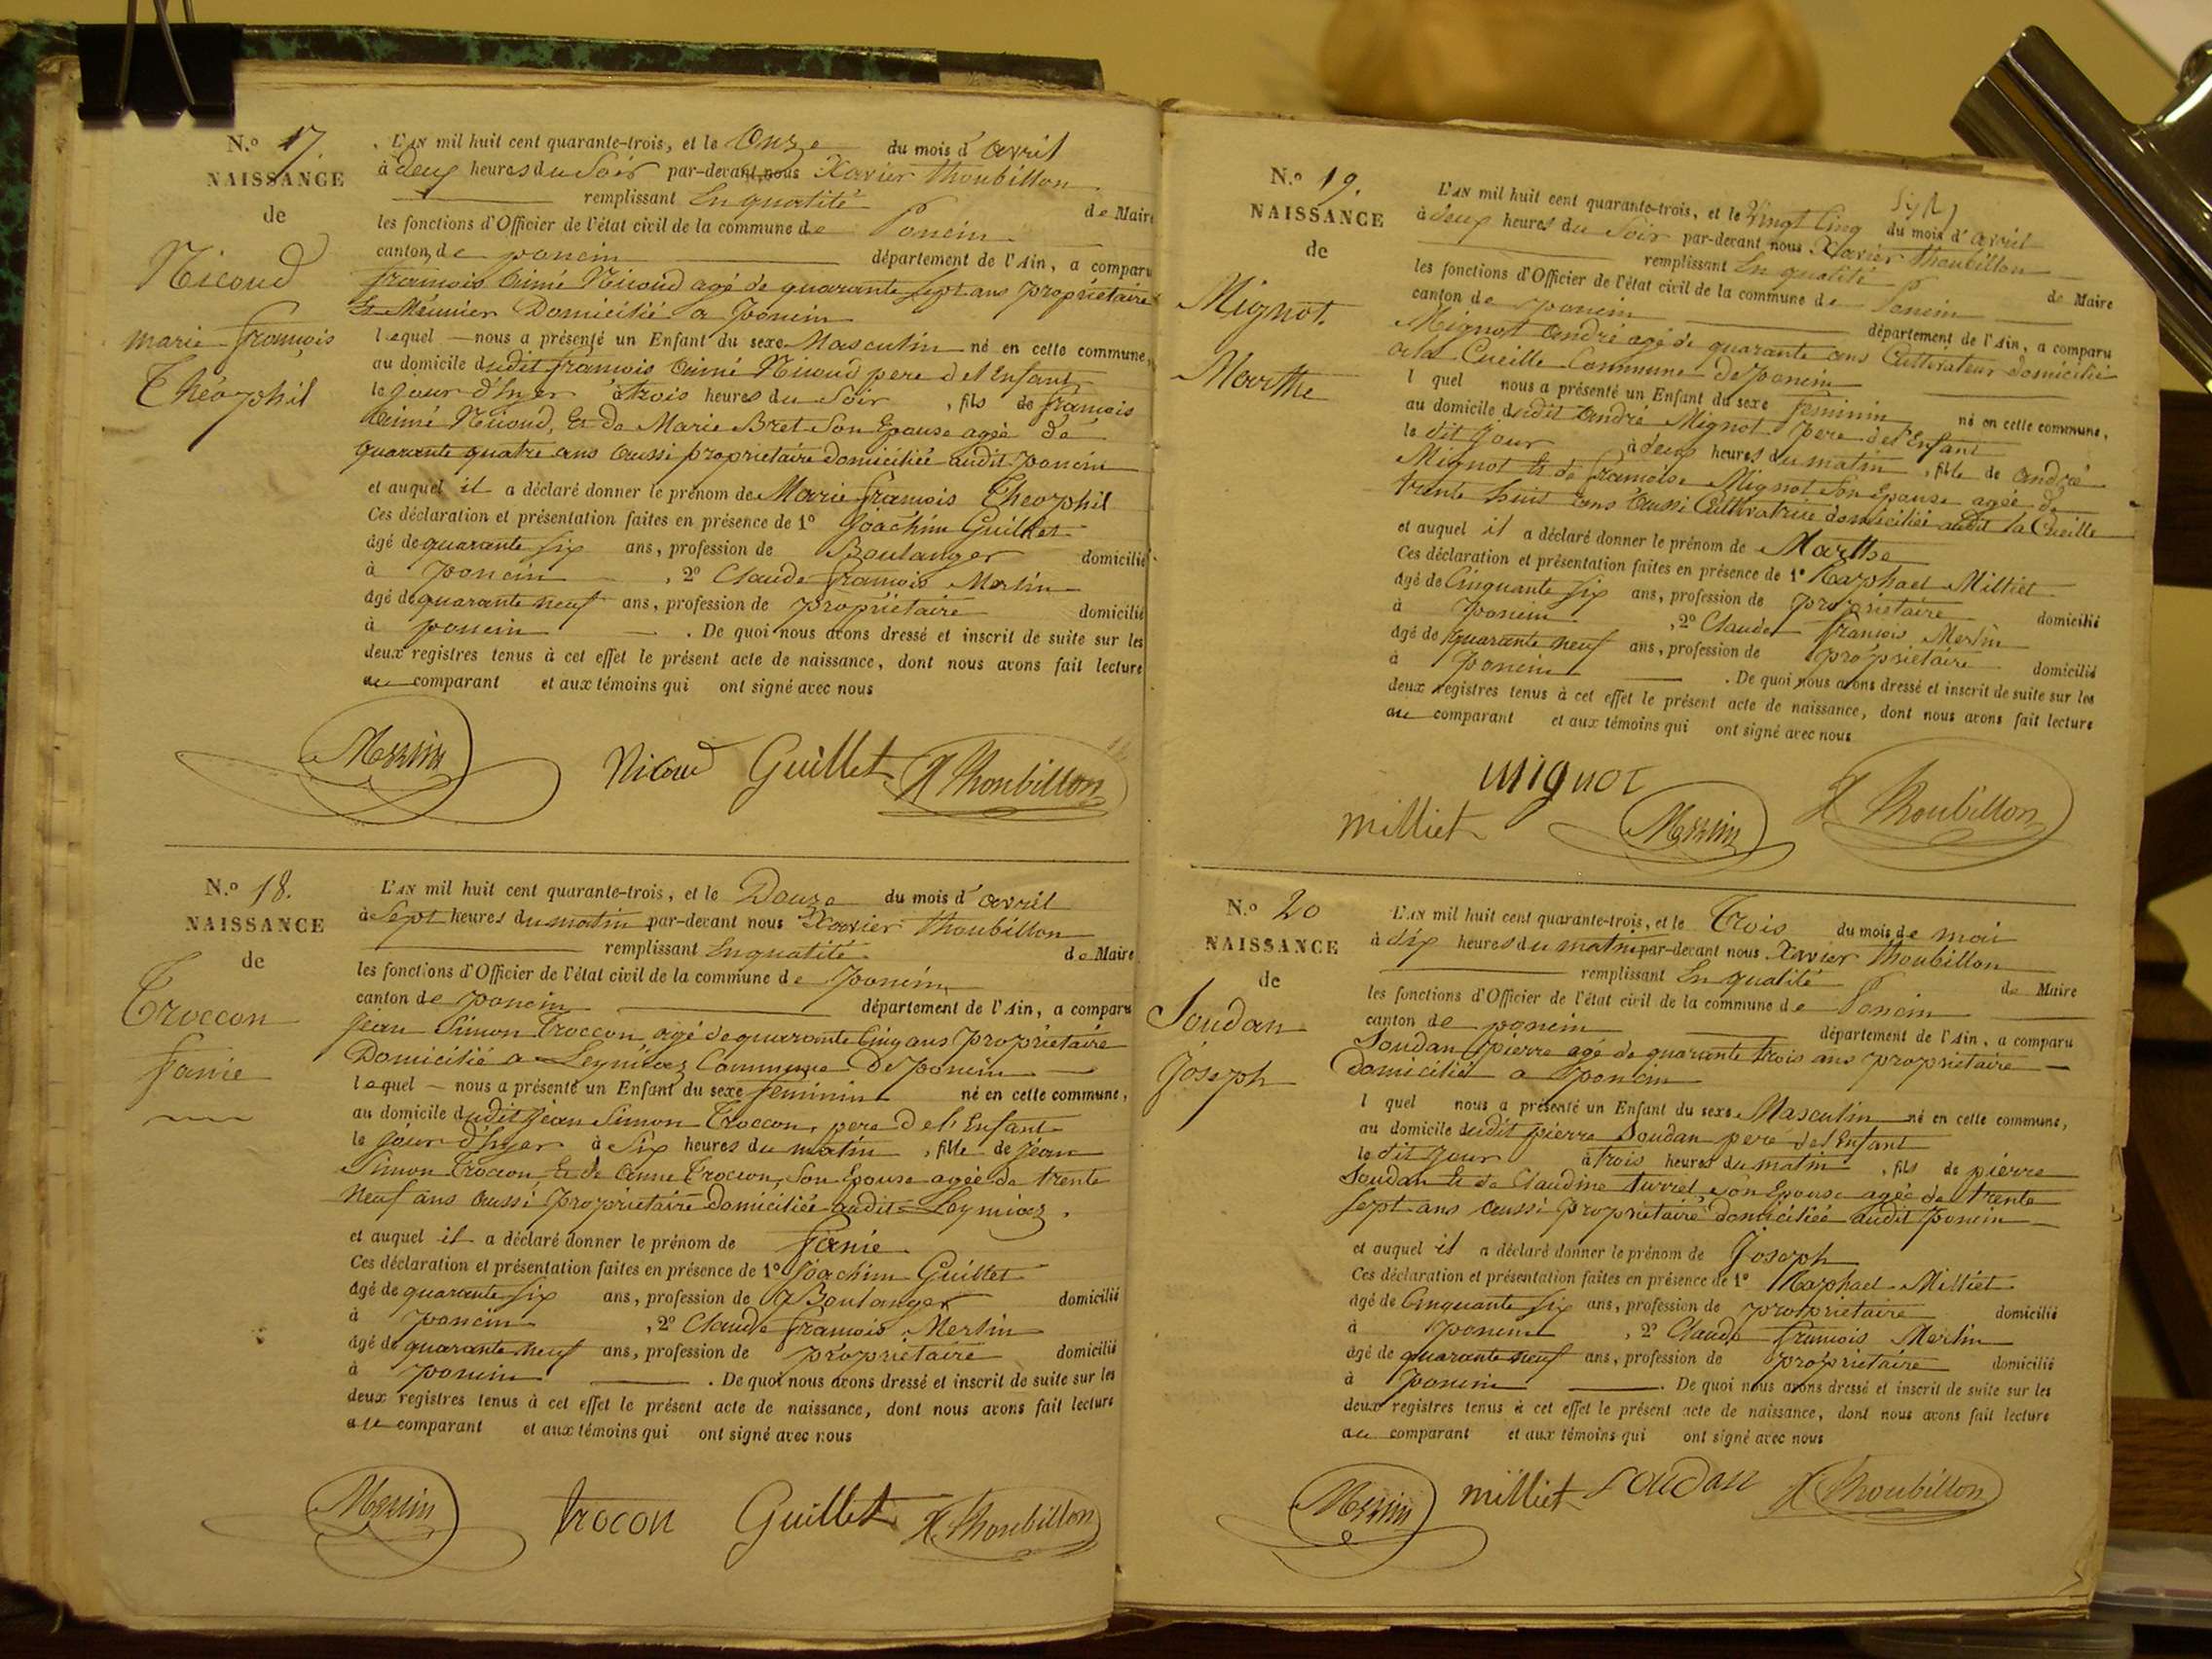 N.º 17.
NAISSANCE
de
Nicoud
marie françois
Théophil
L'AN mil huit cent quarante-trois, et le Onze du mois d'avril
à deux heures du Soir par-devant nous Xavier Thoubillon
remplissant En qualité de Maire
les fonctions d'Officier de l'état civil de la commune de Poncin
canton de poncin département de l'Ain, a comparu
françois Aimé Nicoud agé de quarante Sept ans propriétaire
Et Meunier Domicilié a poncin
lequel nous a présenté un Enfant du sexe Masculin né en cette commune,
au domicile dudit françois Aimé Nicoud pere del Enfant
le jour d'hyer à trois heures du Soir, fils de françois
Aimé Nicoud, Et de Marie Bret Son Epouse agée de
quarante quatre ans Aussi propriétaire domiciliée audit poncin
et auquel il a déclaré donner le prénom de Marie françois Theophil
Ces déclaration et présentation faites en présence de 1º Joachim Guillet
âgé de quarante Six ans, profession de Boulanger domicilié
à poncin, 2º Claude françois Merlin
âgé de quarante neuf ans, profession de propriétaire domicilié
à poncin. De quoi nous avons dressé et inscrit de suite sur les
deux registres tenus à cet effet le présent acte de naissance, dont nous avons fait lecture
au comparant et aux témoins qui ont signé avec nous
Merlin Nicoud Guillet X Thoubillon
N.º 18.
NAISSANCE
de
Troccon
fanie
L'AN mil huit cent quarante-trois, et le Douze du mois d'avril
à Sept heures du matin par-devant nous Xavier Thoubillon
remplissant En qualité de Maire
les fonctions d'Officier de l'état civil de la commune de poncin
canton de poncin département de l'Ain, a comparu
jean Simon Troccon agé de quarante Cinq ans propriétaire
Domicilié a Leymiaz Commune De poncin
lequel nous a présenté un Enfant du sexe feminin né en cette commune,
au domicile dudit jean Simon Troccon, pere Del' Enfant
le jour d'hyer à Six heures du matin, fille de jean
Simon Troccon, Et de Anne Troccon, Son Epouse agée de trente
neuf ans Aussi propriétaire domiciliée audit Leymiaz.
et auquel il a déclaré donner le prénom de fanie
Ces déclaration et présentation faites en présence de 1º Joachim Guillet
âgé de quarante Six ans, profession de Boulanger domicilié
à poncin, 2º Claude françois Merlin
âgé de quarante neuf ans, profession de propriétaire domicilié
à poncin. De quoi nous avons dressé et inscrit de suite sur les
deux registres tenus à cet effet le présent acte de naissance, dont nous avons fait lecture
au comparant et aux témoins qui ont signé avec nous
Merlin trocon Guillet X Thoubillon
N.º 19.
NAISSANCE
de
Mignot.
Marthe
L'AN mil huit cent quarante-trois, et le Vingt Cinq du mois d'avril
à deux heures du Soir par-devant nous Xavier Thoubillon
remplissant En qualité de Maire
les fonctions d'Officier de l'état civil de la commune de Poncin
canton de poncin département de l'Ain, a comparu
Mignot André agé de quarante ans Cultivateur domicilié
a la Cueille Commune De poncin
l quel nous a présenté un Enfant du sexe feminin né en cette commune,
au domicile dudit André Mignot pere del'Enfant
le dit jour à deux heures du matin, fille de André
Mignot Et de françoise Mignot Son Epouse agée de
trente huit ans Aussi Cultivatrice domiciliée audit la Cueille
et auquel il a déclaré donner le prénom de Marthe
Ces déclaration et présentation faites en présence de 1º Raphael Milliet
âgé de Cinquante Six ans, profession de propriétaire domicilié
à poncin, 2º Claude françois Merlin
âgé de quarante neuf ans, profession de propriétaire domicilié
à poncin. De quoi nous avons dressé et inscrit de suite sur les
deux registres tenus à cet effet le présent acte de naissance, dont nous avons fait lecture
au comparant et aux témoins qui ont signé avec nous
mignot
milliet Merlin X Thoubillon
N.º 20
NAISSANCE
de
Soudan
Joseph
L'AN mil huit cent quarante-trois, et le Trois du mois de mai
à dix heures du matin par-devant nous Xavier Thoubillon
remplissant En qualité de Maire
les fonctions d'Officier de l'état civil de la commune de Poncin
canton de poncin département de l'Ain, a comparu
Soudan pierre agé de quarante trois ans propriétaire
domicilié a poncin
l quel nous a présenté un Enfant du sexe Masculin né en cette commune,
au domicile dudit pierre Soudan pere del Enfant
le dit jour à trois heures du matin, fils de pierre
Soudan Et de Claudine turrel son Epouse agée de trente
Sept ans Aussi propriétaire domiciliée audit poncin
et auquel il a déclaré donner le prénom de Joseph
Ces déclaration et présentation faites en présence de 1º Raphael Milliet
âgé de Cinquante Six ans, profession de propriétaire domicilié
à poncin, 2º Claude françois Merlin
âgé de quarante neuf ans, profession de propriétaire domicilié
à poncin. De quoi nous avons dressé et inscrit de suite sur les
deux registres tenus à cet effet le présent acte de naissance, dont nous avons fait lecture
au comparant et aux témoins qui ont signé avec nous
Merlin milliet soudan X Thoubillon